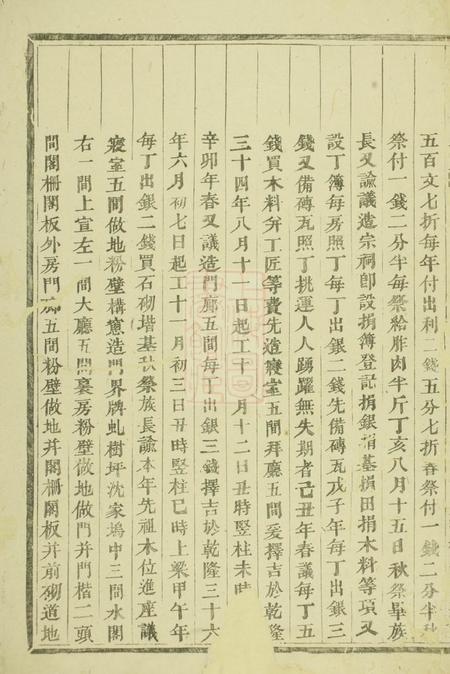 五百文七折每年付出利二錢五分七折春祭付一錢二分半秋
祭付一錢二分半每祭給胙肉半斤丁亥八月十五日秋祭畢族
長又諭議造宗祠卽設捐簿登記捐銀捐基捐田捐木料等項又
設丁簿每房照丁每丁出銀二錢先備磚瓦戊子年每丁出銀三
錢又備磚瓦照丁挑運人人踴躍無失期者己丑年春議每丁五
錢買木料并工匠等費先造寢室五間拜廳五間爰擇吉於乾隆
三十四年八月十一日起工十月十二日丑時竪柱未時
辛卯年春又議造門廊五間每丁出銀三錢擇吉於乾隆三十六
年六月初七日起工十一月初三日丑時竪柱巳時上梁甲午年
每丁出銀二錢買石砌堦基秋祭族長諭本年先祖木位進座議
寢室五間做地粉壁構窻造門界牌虬樹坪沈家塢中三間水閣
右一間上宣左一間大廳五間裏房粉壁做地做門并門楷二頭
間閣柵閣板外房門廊五間粉壁做地并閣柵閣板并前砌道地